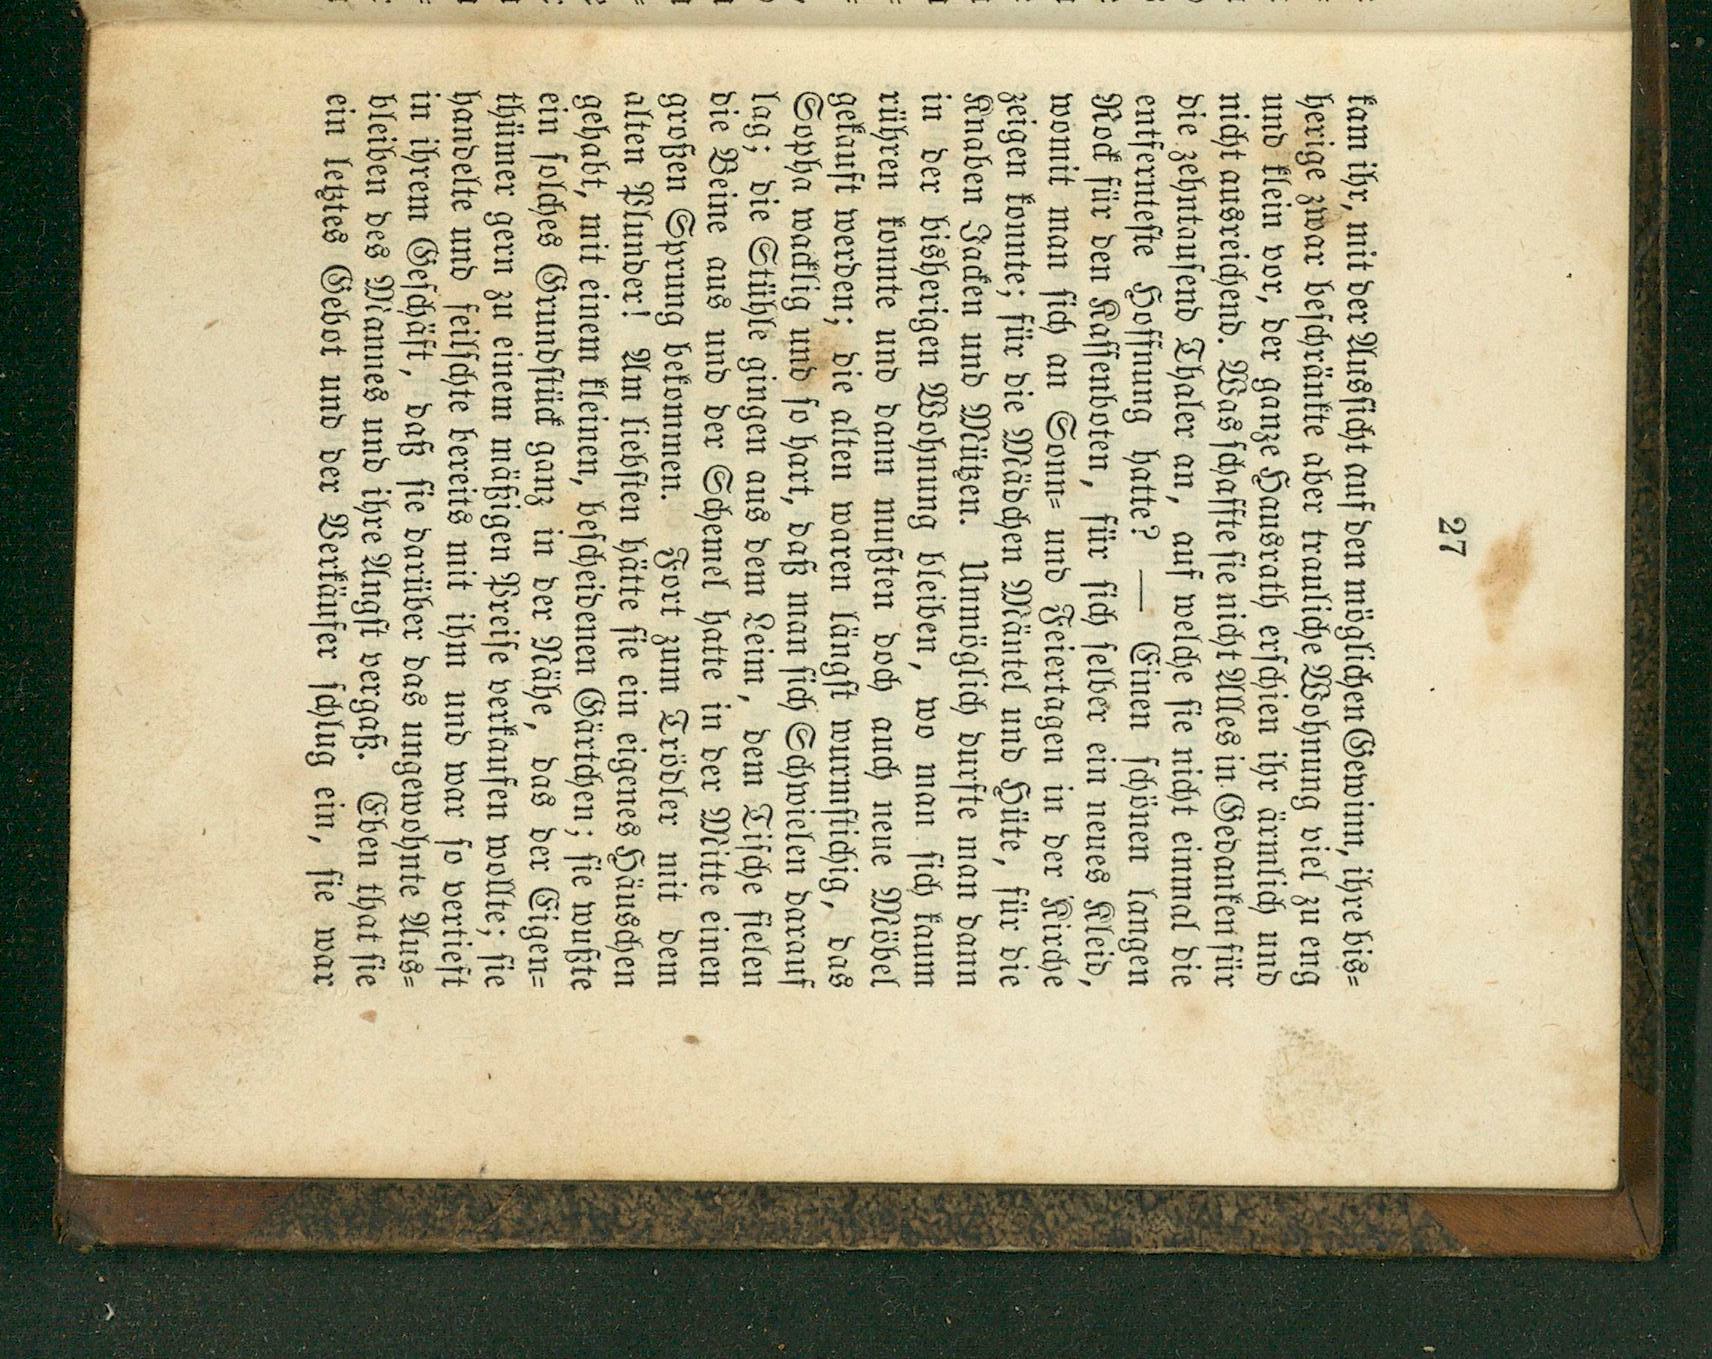 27
kam ihr, mit der Aussicht auf den möglichen Gewinn, ihre bis-
herige zwar beschränkte aber trauliche Wohnung viel zu eng
und klein vor, der ganze Hausrath erschien ihr ärmlich und
nicht ausreichend. Was schaffte sie nicht Alles in Gedanken für
die zehntausend Thaler an, auf welche sie nicht einmal die
entfernteste Hoffnung hatte? — Einen schönen langen
Rock für den Kassenboten, für sich selber ein neues Kleid,
womit man sich an Sonn- und Feiertagen in der Kirche
zeigen konnte; für die Mädchen Mäntel und Hüte, für die
Knaben Jacken und Mützen. Unmöglich durfte man dann
in der bisherigen Wohnung bleiben, wo man sich kaum
rühren konnte und dann mußten doch auch neue Möbel
gekauft werden; die alten waren längst wurmstichig, das
Sopha wacklig und so hart, daß man sich Schwielen darauf
lag; die Stühle gingen aus dem Leim, dem Tische fielen
die Beine aus und der Schemel hatte in der Mitte einen
großen Sprung bekommen. Fort zum Trödler mit dem
alten Plunder! Am liebsten hätte sie ein eigenes Häuschen
gehabt, mit einem kleinen, bescheidenen Gärtchen; sie wußte
ein solches Grundstück ganz in der Nähe, das der Eigen-
thümer gern zu einem mäßigen Preise verkaufen wollte; sie
handelte und feilschte bereits mit ihm und war so vertieft
in ihrem Geschäft, daß sie darüber das ungewohnte Aus-
bleiben des Mannes und ihre Angst vergaß. Eben that sie
ein letztes Gebot und der Verkäufer schlug ein, sie war